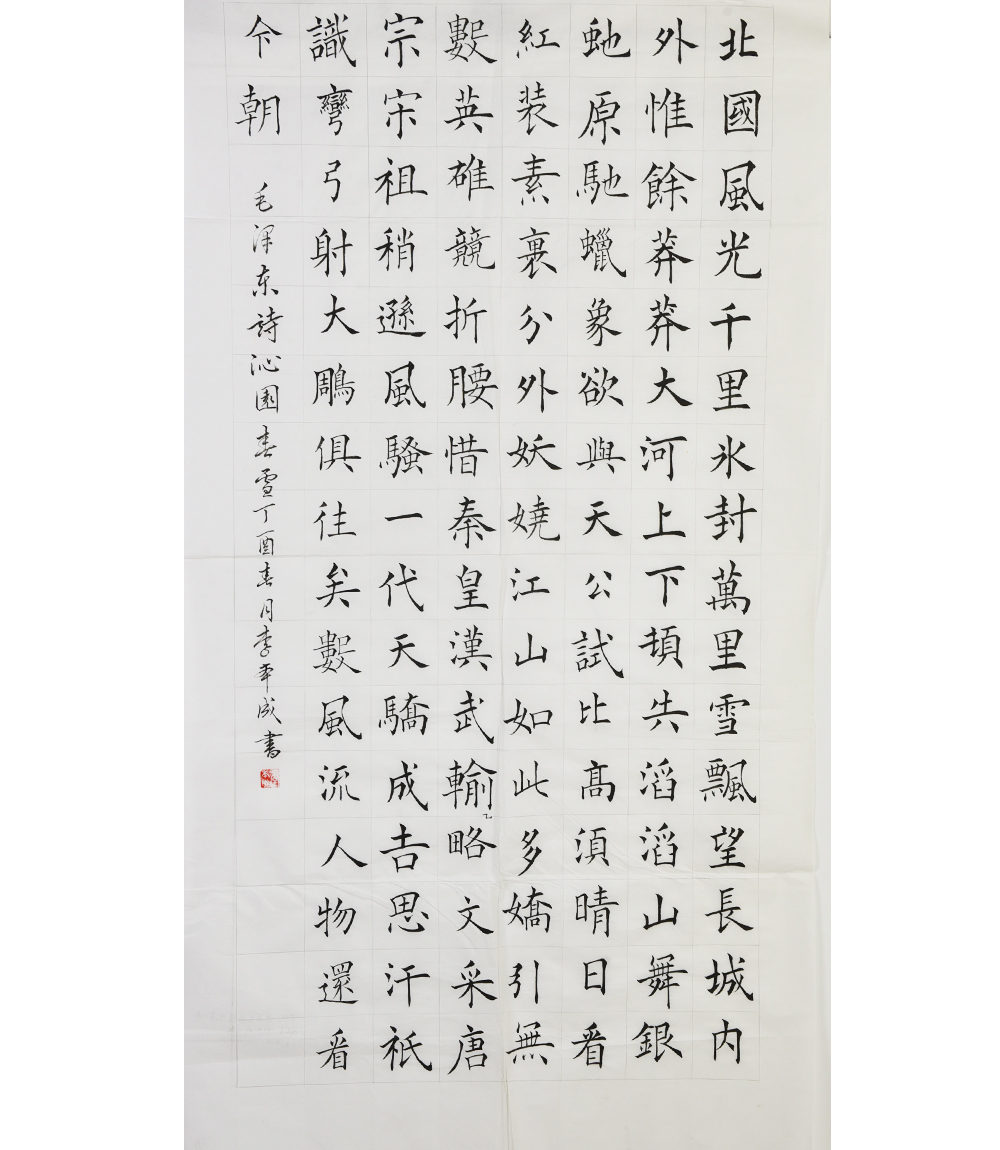 北國風光千里氷封萬里雪飄望長城内
外惟餘莽莽大河上下頓失滔滔山舞銀
虵原馳蠟象欲與天公試比髙須晴日看
紅装素裹分外妖嬈江山如此多嬌引無
數英雄競折腰惜秦皇漢武輸略文采唐
宗宋祖稍遜風騷一代天驕成吉思汗衹
識彎弓射大鵰俱往矣數風流人物還看
今朝
毛泽东詩沁園春雪丁酉春月李年成書